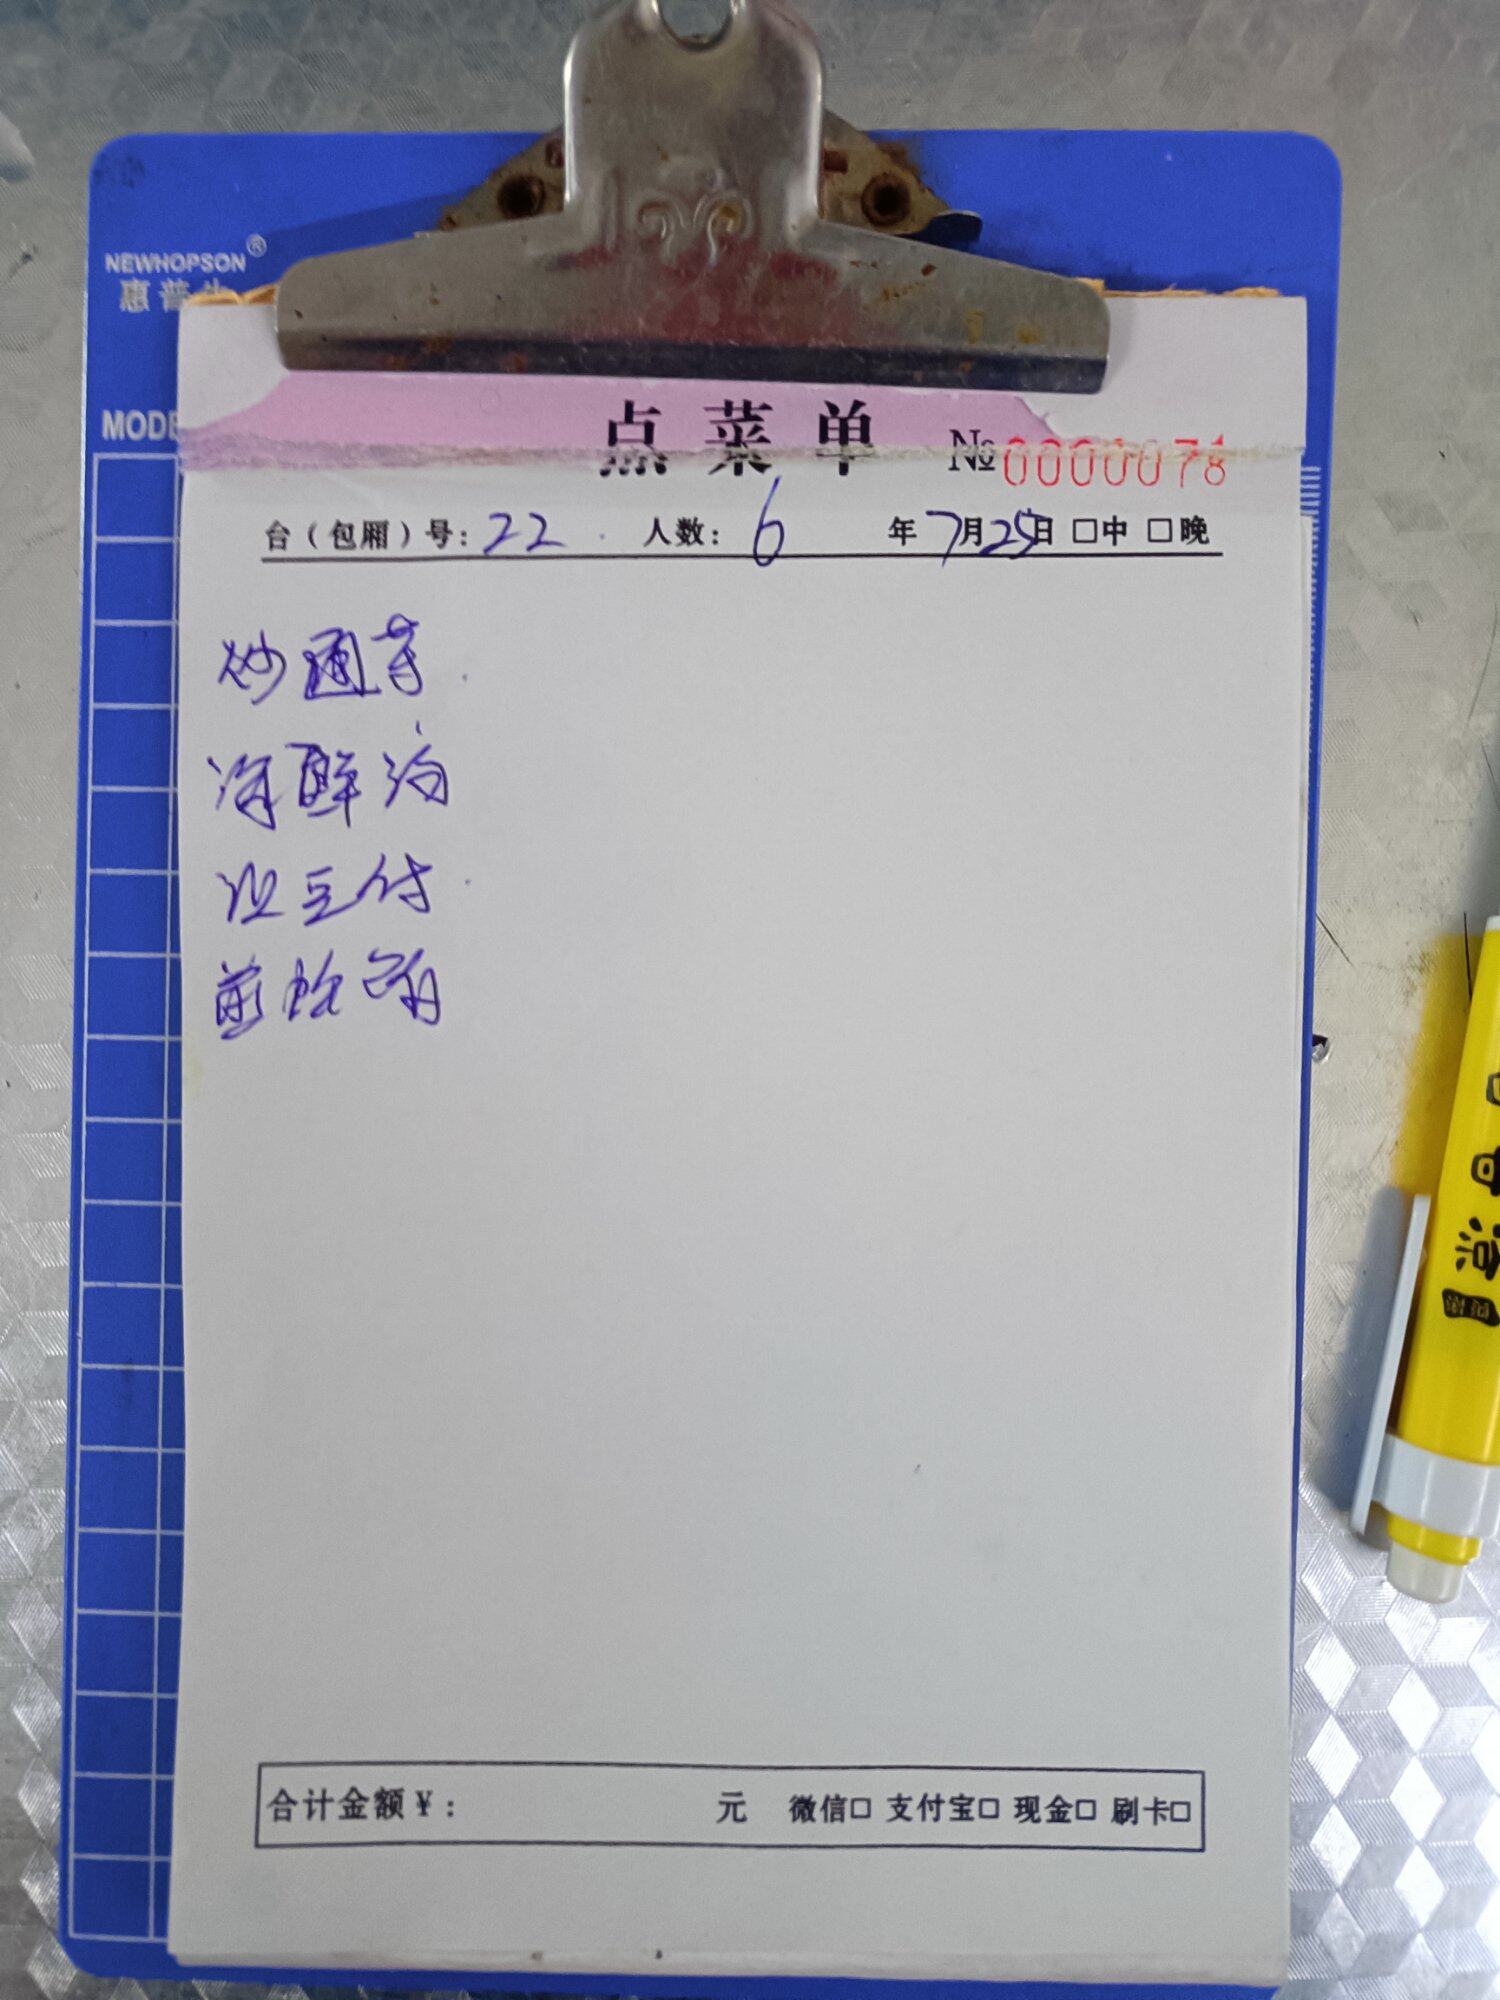 NEWHOPSON®
惠普生
MODE
点菜单 № 0000078
台（包厢）号：22 人数：6 年7月25日 □中 □晚
炒通芋
海鲜汤
泥豆付
煎蛤
合计金额￥： 元 微信□ 支付宝□ 现金□ 刷卡□